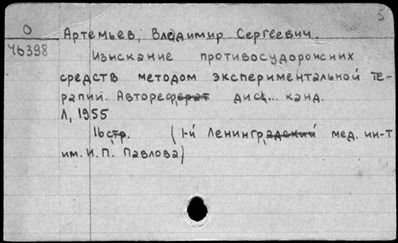 5
О Артемьев, Владимир Сергеевич.
Ч6398
Изыскание противосудорожных
средств методом экспериментальной те-
рапии. Автореферат дисс... канд.
Л, 1955
16 стр. (1-й Ленинградский мед. ин-т
им. И. П. Павлова)